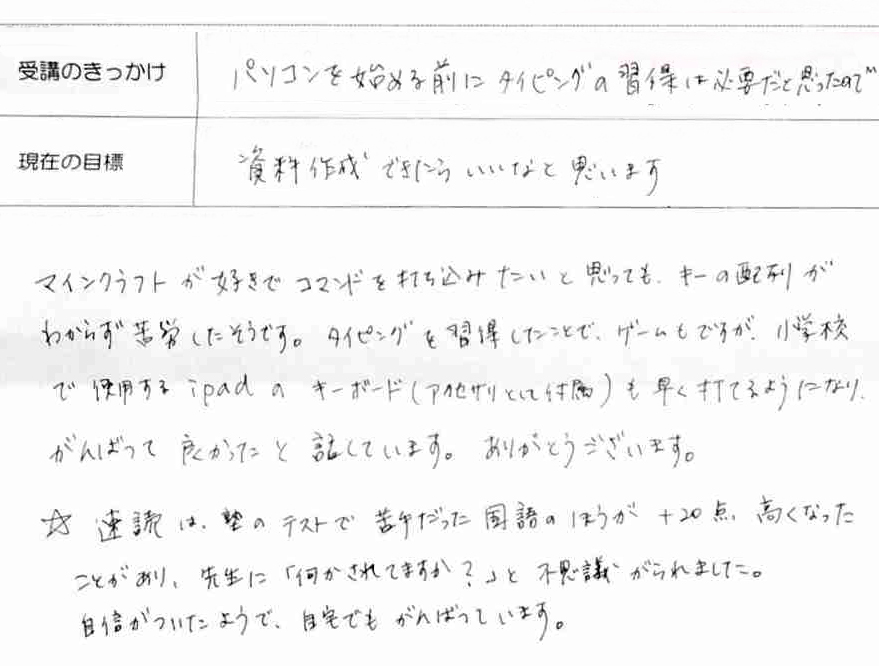 受講のきっかけ パソコンを始める前にタイピングの習得は必要だと思ったので
現在の目標 資料作成できたらいいなと思います
マインクラフトが好きでコマンドを打ち込みたいと思っても、キーの配列が
わからず苦労したそうです。タイピングを習得したことで、ゲームもですが、小学校
で使用するipadのキーボード(アクセサリとして付属)も早く打てるようになり、
がんばって良かったと話しています。ありがとうございます。
☆ 速読は、塾のテストで苦手だった国語のほうが+20点、高くなった
ことがあり、先生に「何かされてますか?」と不思議がられました。
自信がついたようで、自宅でもがんばっています。